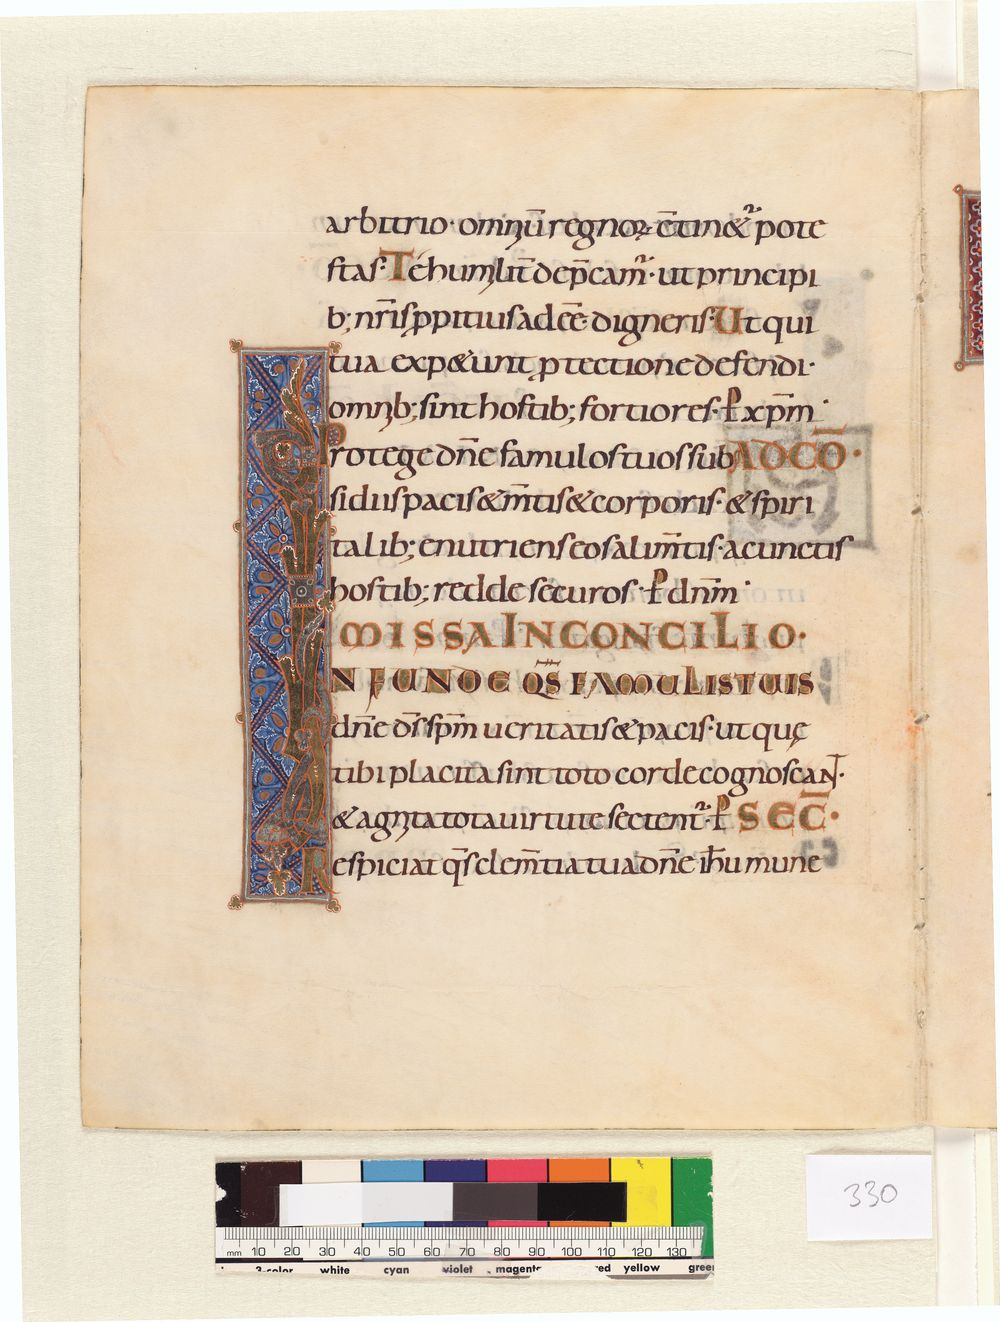 arbitrio· omniū regnor̄ c̄tin&̄ pote
stas· Te humilit̄ dep̄cam̄· ut principi
b; nr̄is ppitius adeē· digneris· Ut qui
tua exp&unt ptectione defendi·
omnib; sint hostib; fortiores· P xp̄m·
Protege dn̄e famulos tuos sub AD CŌ·
sidiis pacis & m̄tis & corporis· & spiri
talib; enutriens eos alim̄tis· a cunctis
hostib; redde securos· P dn̄m·
MISSA IN CONCILIO·
INFUNDE QS̄ FAMULIS TUIS
dn̄e ds̄ sp̄m ueritatis & pacis· ut quę
tibi placita sint toto corde cognoscaNT·
& agnita tota uirtute sectent̄· P SEC̄·
Respiciat qs̄ clem̄tia tua dn̄e ih̄u mune
330
mm 10 20 30 40 50 60 70 80 90 100 110 120 130
3-color white cyan violet magenta red yellow green